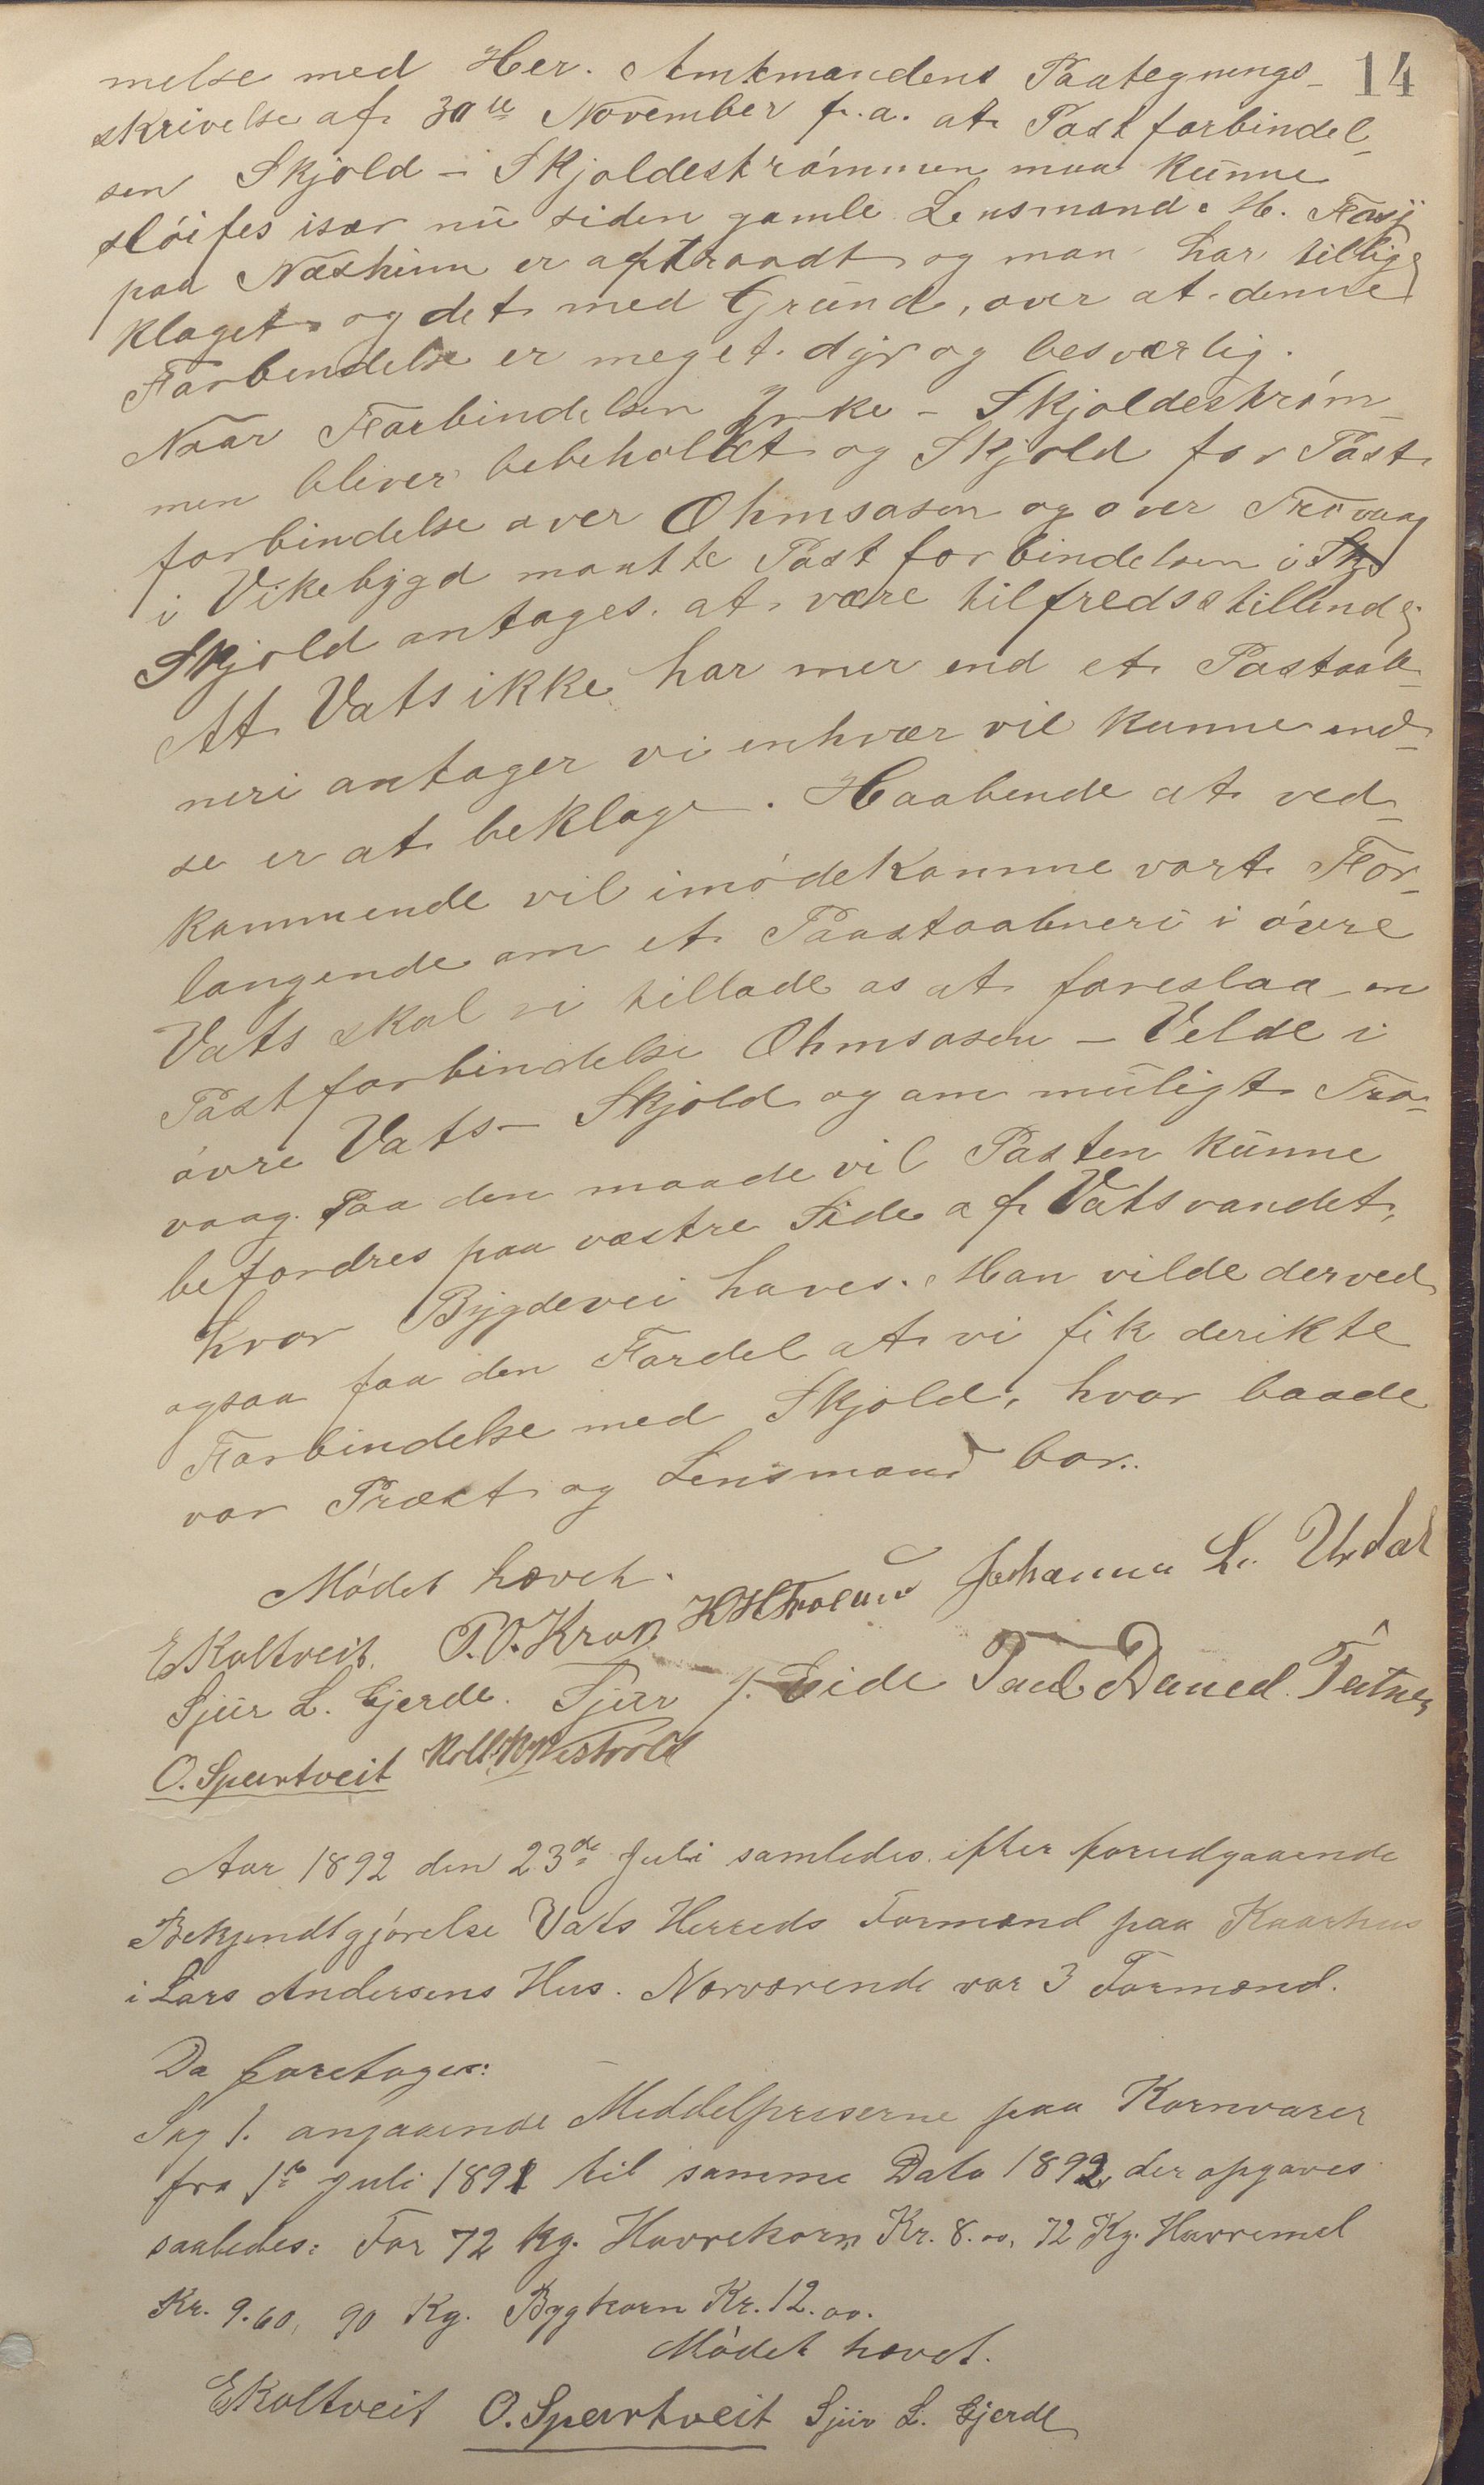 14
melse med Her. Amtmandens Paategnings-
skrivelse af 30te November f.a. at Postforbindel-
sen Skjold - Skjoldestrømmen maa kunne
sløifes især nu siden gamle Lensmand H.
paa Næsheim er aftraadt og man har tillige
klaget og det med Grund, over at denne
Forbindelse er meget dyr og besværlig.
Naar Forbindelsen Yrke - Skjoldestrøm-
men bliver bebeholdt og Skjold for Post
forbindelse over Ølmsosen og over Trovaag
i Vikebygd maatte Postforbindelsen i
Skjold antages at være tilfredsstillende
At Vats ikke har mer end et Postaab-
neri antager vi enhvær vil kunne ind-
se er at beklage. Haabende at ved-
kommende vil imødekomme vort For-
langende om et Paastaabneri i øvre
Vats skal vi tillade os at foreslaa en
Postforbindelse Ølmsosen - Velde i
øvre Vats - Skjold og om muligt Tro-
vaag. Paa den maade vil Posten kunne
befordres paa vestre Side af Vatsvandet,
hvor Bygdevei haves. Man vilde derved
ogsaa faa den Fordel at vi fik derikte
Forbindelse med Skjold, hvor baade
vor Præst og Lensmand bor.
Mødet hævet.
Johannes L. Urdal
E Kaltveit P.O. Krak
Sjur L. Gjerde. Sjur J. Eide
O. Spærtveit
Aar 1892 den 23de Juli samledes efter forudgaaende
Bekjendtgjørelse Vats Herreds Formænd paa Kaarhus
i Lars Andersens Hus. Nærværende var 3 Formænd.
Da foretoges:
Sag 1. angaaende Middelpriserne paa Kornvarer
fra 1ste Juli 1891 til samme Dato 1892, der opgaves
saaledes: For 72 kg. Havrekorn Kr. 8.00, 72 Kg. Havremel
Kr. 9.60, 90 Kg. Bygkorn Kr. 12.00.
Mødet hævet.
E Kaltveit O. Spærtveit Sjur L. Gjerde